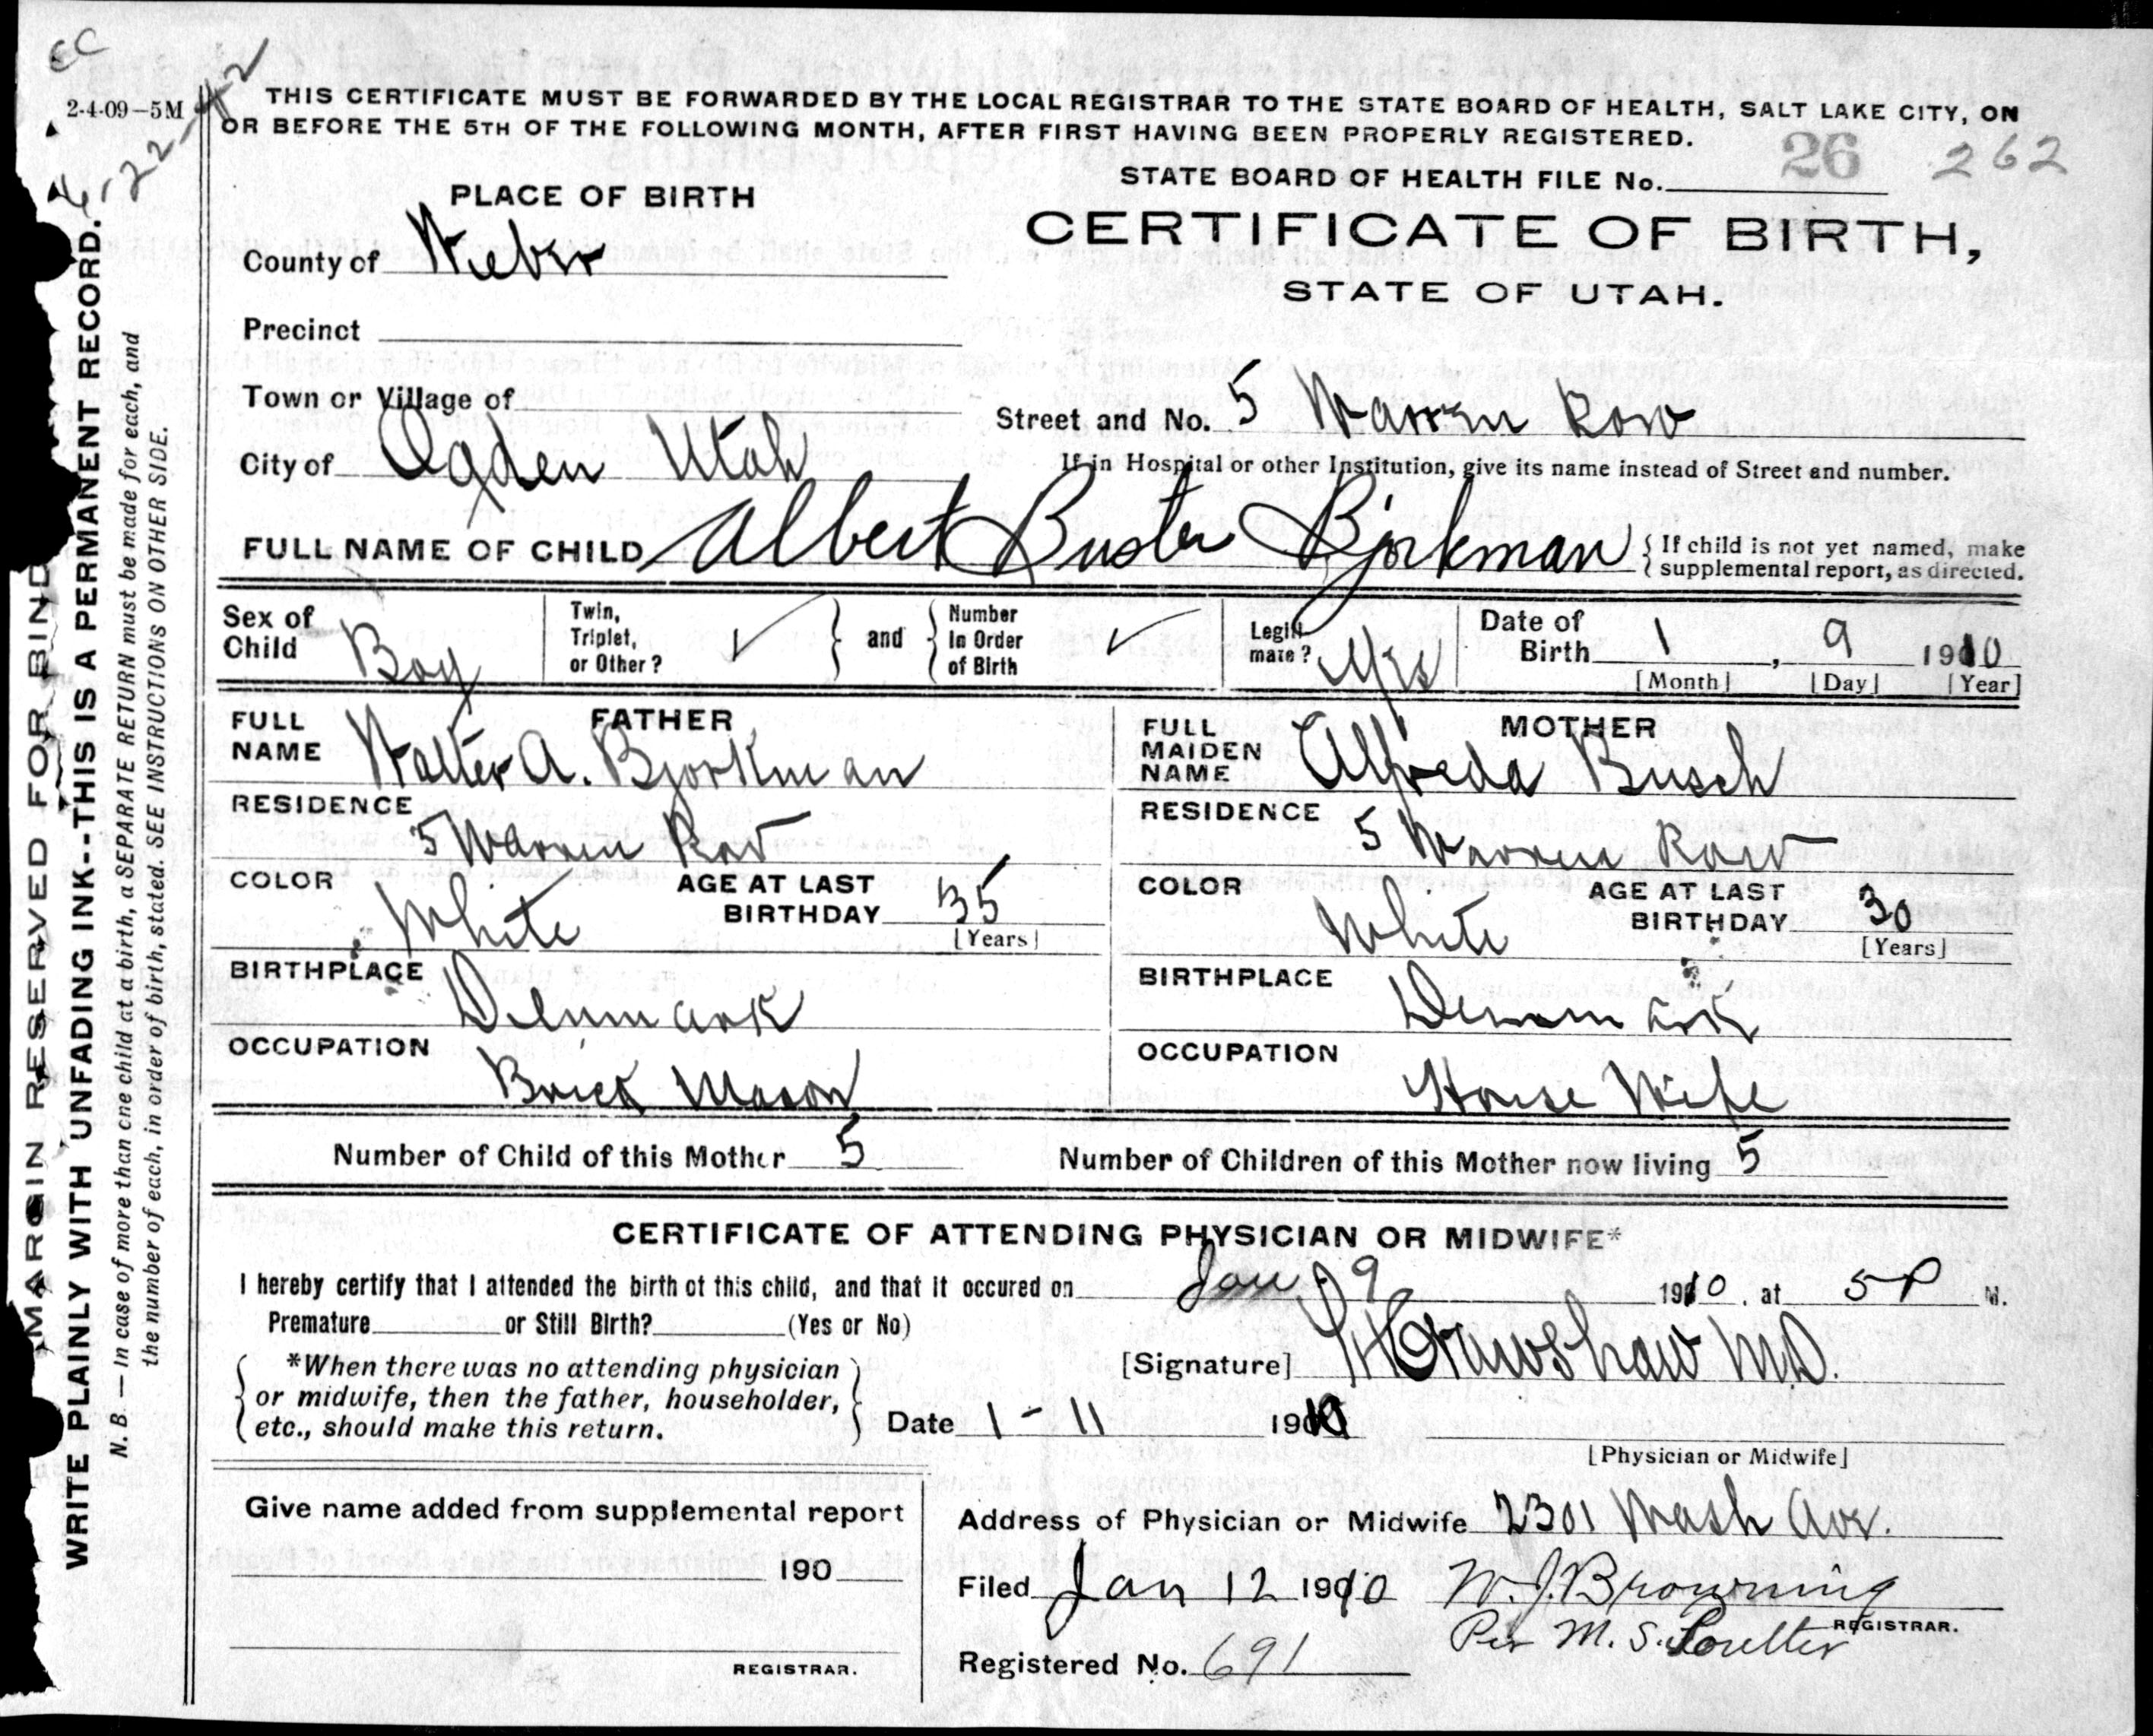 EC
2-4-09-5M
4-22-42
THIS CERTIFICATE MUST BE FORWARDED BY THE LOCAL REGISTRAR TO THE STATE BOARD OF HEALTH, SALT LAKE CITY, ON
OR BEFORE THE 5TH OF THE FOLLOWING MONTH, AFTER FIRST HAVING BEEN PROPERLY REGISTERED.
26 262
STATE BOARD OF HEALTH FILE No.
PLACE OF BIRTH
CERTIFICATE OF BIRTH,
STATE OF UTAH.
County of Weber
Precinct
Town or Village of
Street and No. 5 Warren Row
City of Ogden Utah
If in Hospital or other Institution, give its name instead of Street and number.
FULL NAME OF CHILD Albert Buster Bjorkman
If child is not yet named, make
supplemental report, as directed.
Sex of
Child Boy
Twin,
Triplet,
or Other? ✓
and
Number
in Order
of Birth ✓
Legiti-
mate? Yes
Date of
Birth 1, 9 1910
[Month] [Day] [Year]
FATHER
FULL
NAME Walter A. Bjorkman
RESIDENCE
5 Warren Row
COLOR White
AGE AT LAST
BIRTHDAY 35
[Years]
BIRTHPLACE
Denmark
OCCUPATION
Brick Mason
MOTHER
FULL
MAIDEN
NAME Alfreda Busch
RESIDENCE
5 Warren Row
COLOR White
AGE AT LAST
BIRTHDAY 30
[Years]
BIRTHPLACE
Denmark
OCCUPATION
House Wife
Number of Child of this Mother 5
Number of Children of this Mother now living 5
CERTIFICATE OF ATTENDING PHYSICIAN OR MIDWIFE*
I hereby certify that I attended the birth of this child, and that it occured on Jan 9 1910, at 5 P M.
Premature or Still Birth? (Yes or No)
*When there was no attending physician
or midwife, then the father, householder,
etc., should make this return.
[Signature] Crawshaw MD.
Date 1-11 1910
[Physician or Midwife]
Give name added from supplemental report
190
REGISTRAR.
Address of Physician or Midwife 2301 Wash Ave.
Filed Jan 12 1910 W. J. Browning
REGISTRAR.
Per M. S.
Registered No. 691
MARGIN RESERVED FOR BIND
WRITE PLAINLY WITH UNFADING INK--THIS IS A PERMANENT RECORD.
N. B. — In case of more than one child at a birth, a SEPARATE RETURN must be made for each, and
the number of each, in order of birth, stated. SEE INSTRUCTIONS ON OTHER SIDE.